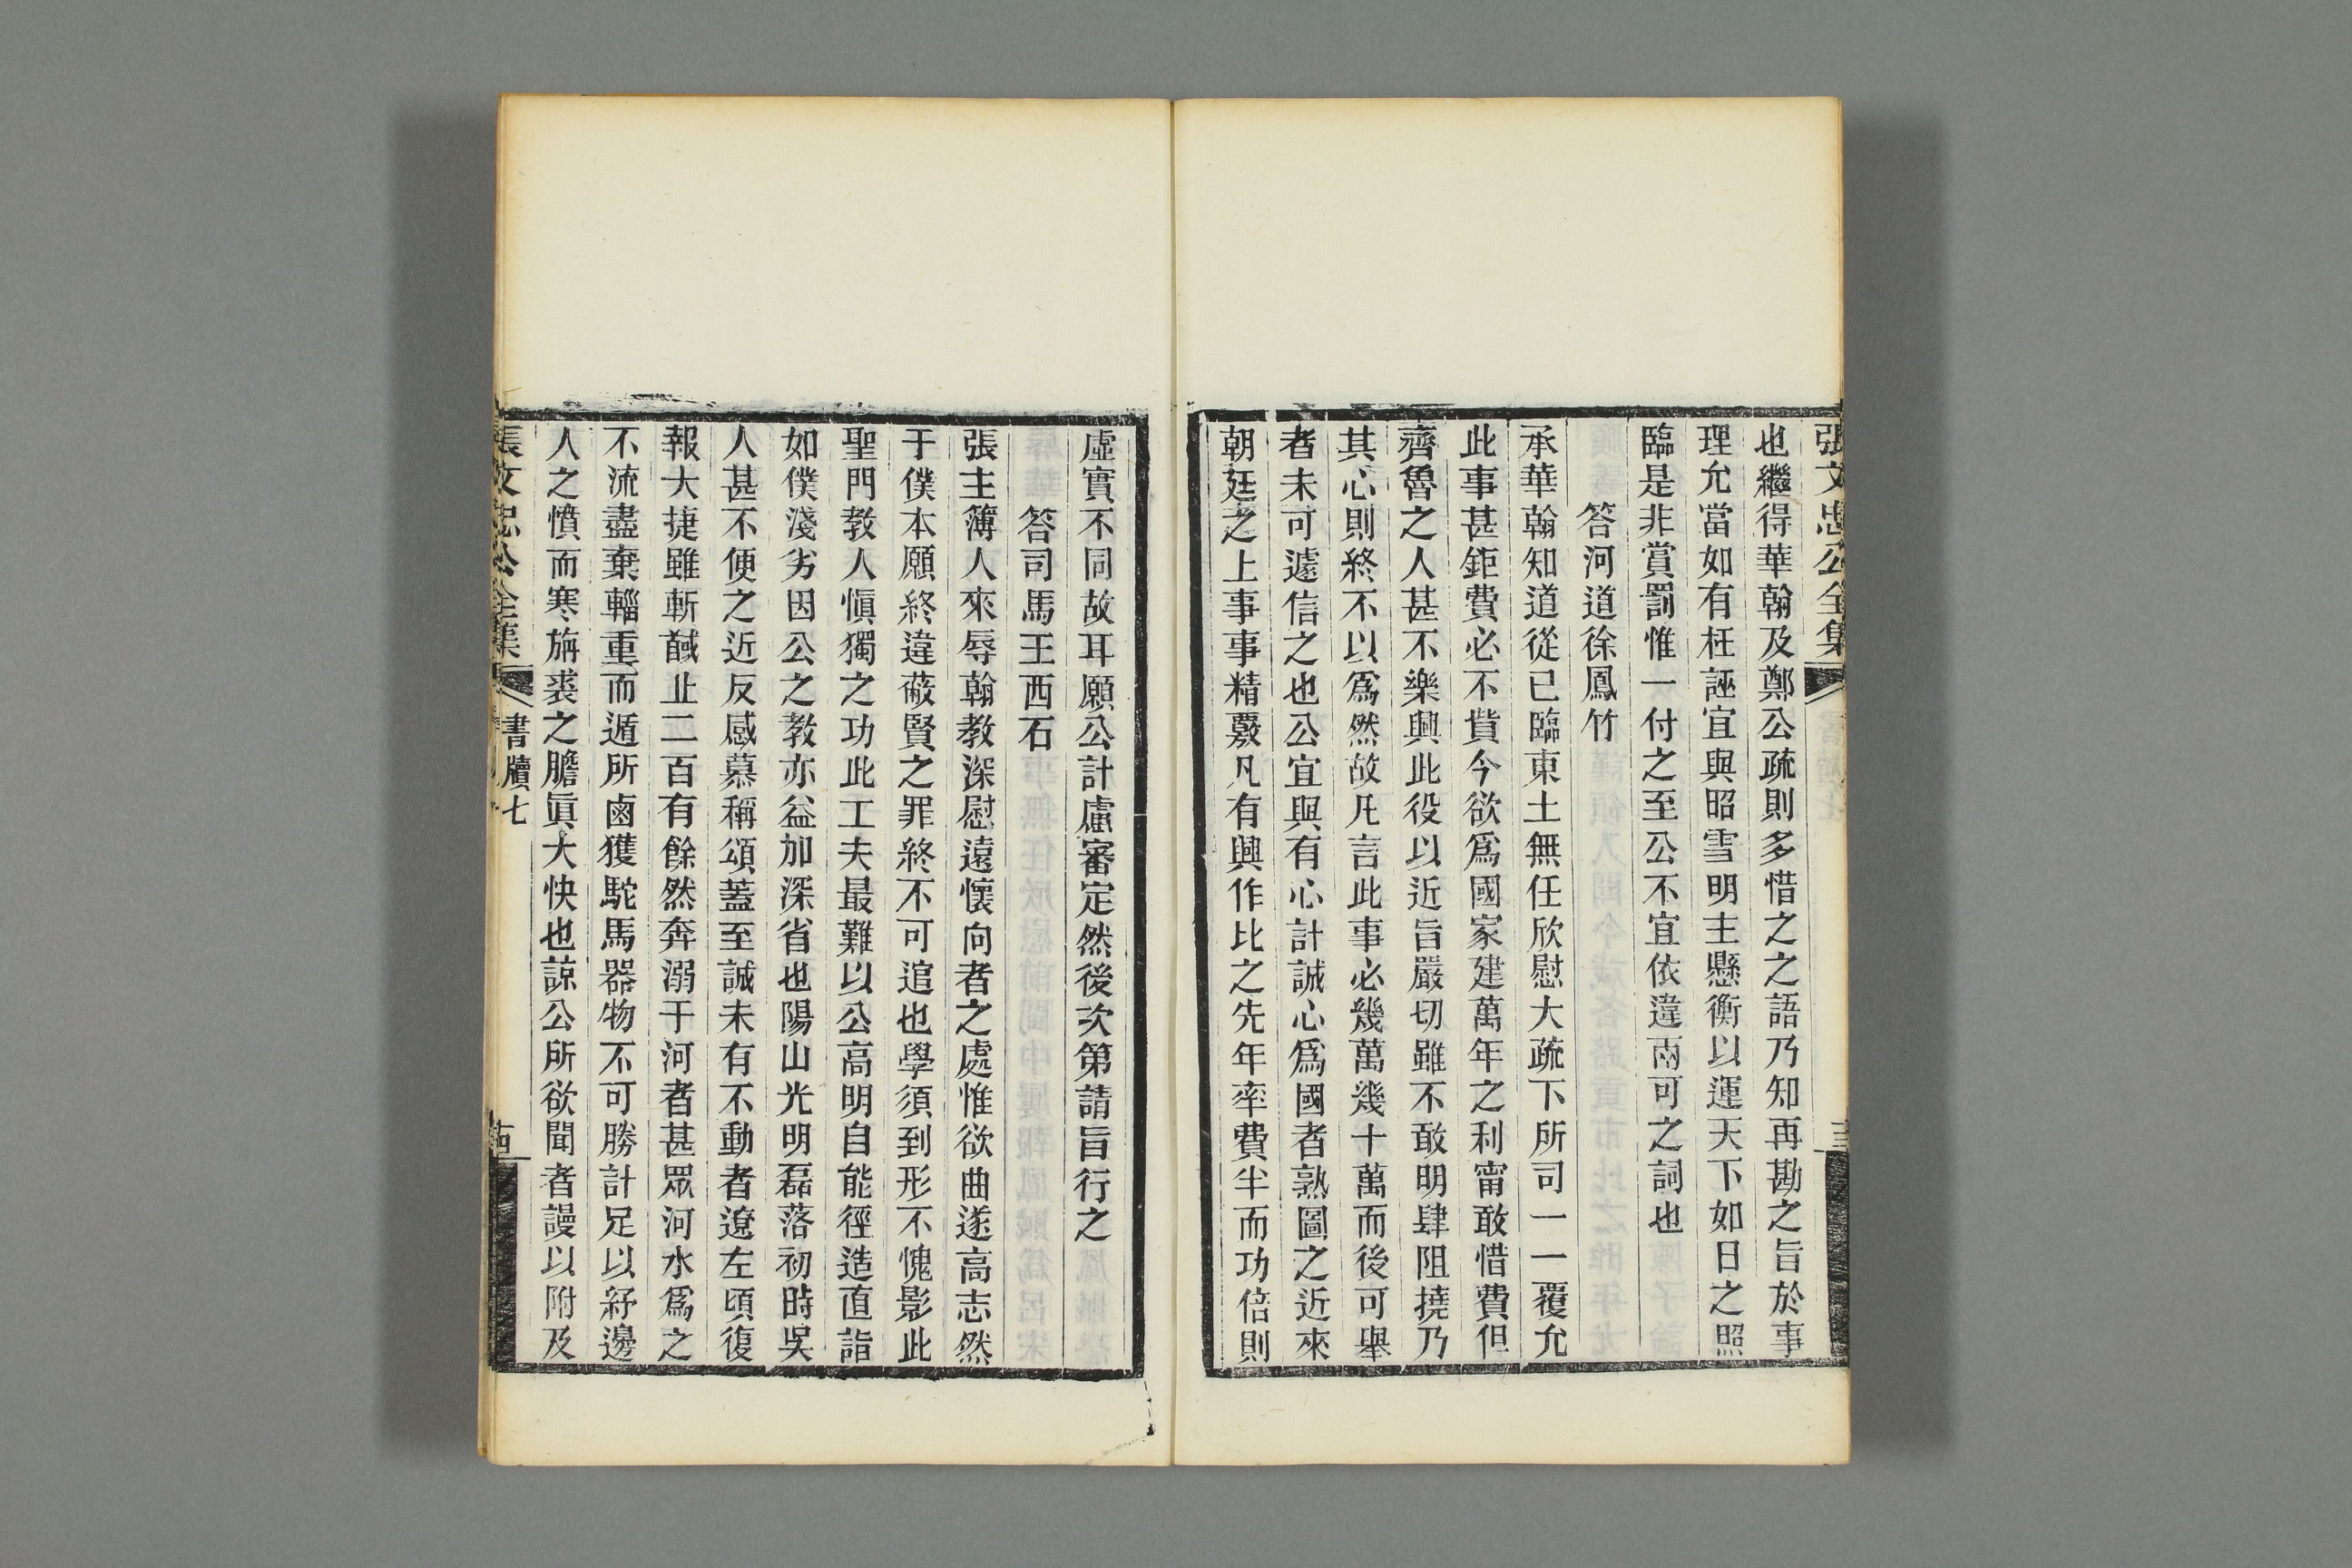 張文忠公全集
也繼得華翰及鄭公疏則多惜之之語乃知再勘之旨於事
理允當如有枉誣宜與昭雪明主懸衡以運天下如日之照
臨是非賞罰惟一付之至公不宜依違兩可之詞也
答河道徐鳳竹
承華翰知道從已臨東土無任欣慰大疏下所司一一覆允
此事甚鉅費必不貲今欲爲國家建萬年之利甯敢惜費但
齊魯之人甚不樂興此役以近旨嚴切雖不敢明肆阻撓乃
其心則終不以爲然故凡言此事必幾萬幾十萬而後可舉
者未可遽信之也公宜與有心計誠心爲國者熟圖之近來
朝廷之上事事精覈凡有興作比之先年率費半而功倍則
虛實不同故耳願公計慮審定然後次第請旨行之
答司馬王西石
張主簿人來辱翰教深慰遠懷向者之處惟欲曲遂高志然
于僕本願終違蔽賢之罪終不可追也學須到形不愧影此
聖門教人愼獨之功此工夫最難以公高明自能徑造直詣
如僕淺劣因公之教亦益加深省也陽山光明磊落初時吳
人甚不便之近反感慕稱頌蓋至誠未有不動者遼左頃復
報大捷雖斬馘止二百有餘然奔溺于河者甚眾河水爲之
不流盡棄輜重而遁所鹵獲駝馬器物不可勝計足以紓邊
人之憤而寒旃裘之膽眞大快也諒公所欲聞者謾以附及
張文忠公全集
書牘七